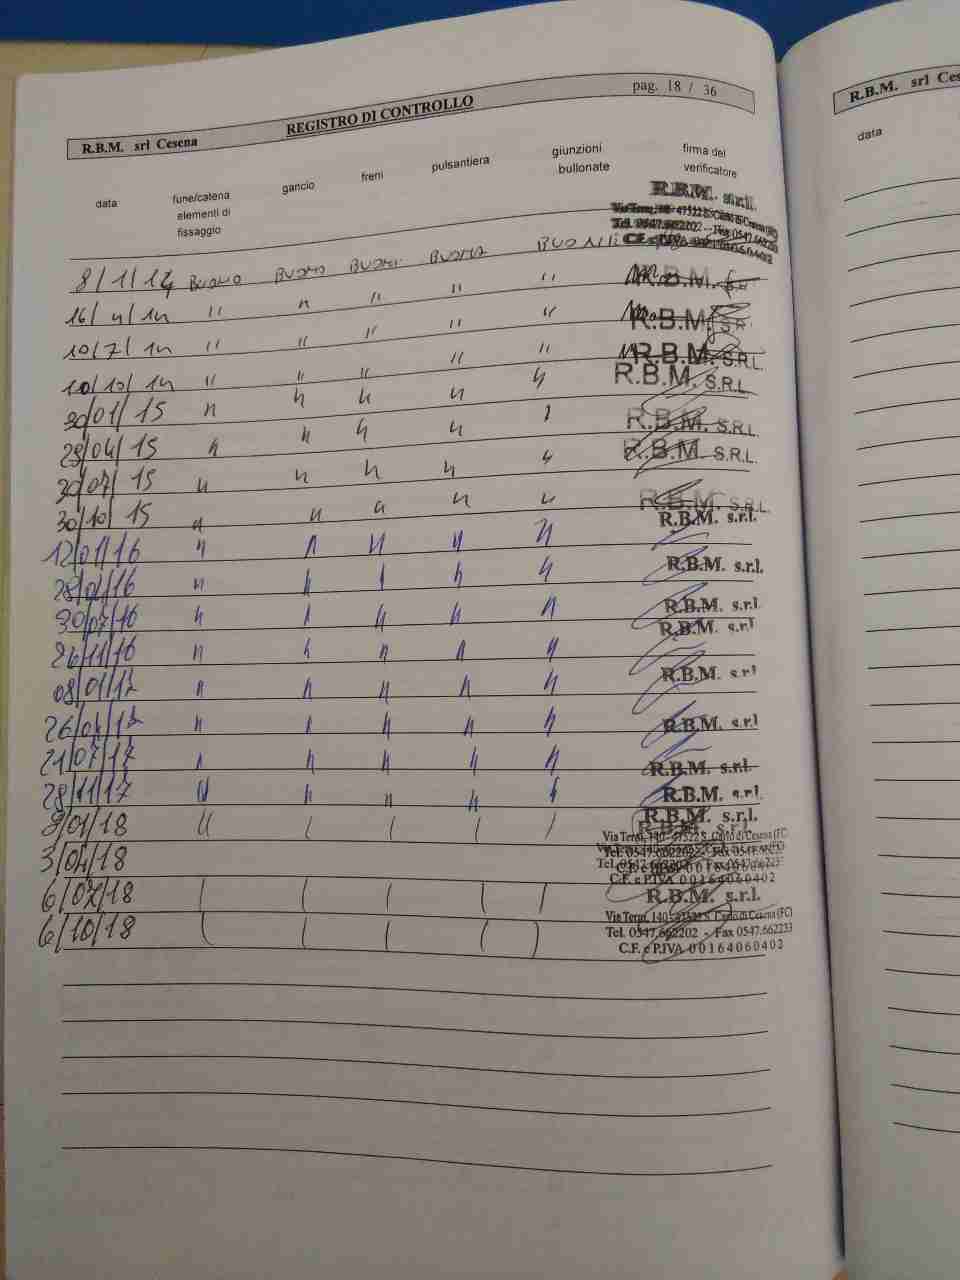 R.B.M. srl Cesena REGISTRO DI CONTROLLO pag. 18 / 36
data fune/catena elementi di fissaggio gancio freni pulsantiera giunzioni bullonate firma del verificatore
R.B.M. s.r.l.
Tel. 0547.662202 - Fax 0547.662233
8/1/14 BUONO BUONO BUONI BUONA BUONI
R.B.M. S.R.L.
16/4/14 " " " " "
R.B.M. S.R.L.
10/7/14 " " " " "
R.B.M. S.R.L.
10/10/14 " " " " "
R.B.M. S.R.L.
30/01/15 " " " " "
R.B.M. S.R.L.
29/04/15 " " " "
R.B.M. S.R.L.
30/07/15 " " " " "
R.B.M. S.R.L.
30/10/15 " " " " "
R.B.M. s.r.l.
12/01/16 " " " " "
R.B.M. s.r.l.
28/04/16 " " " " "
R.B.M. s.r.l.
30/07/16 " " " " "
R.B.M. s.r.l.
26/11/16 " " " " "
R.B.M. s.r.l
08/01/17 " " " " "
R.B.M. s.r.l
26/04/17 " " " " "
R.B.M. s.r.l.
21/07/17 " " " " "
R.B.M. s.r.l.
28/11/17 " " " " "
R.B.M. s.r.l.
9/01/18 "
R.B.M. s.r.l.
Via Terni, 140 - 47522 S. Carlo di Cesena (FC)
Tel. 0547.662202 - Fax 0547.662233
C.F. e P.IVA 00164060402
3/04/18
6/07/18
R.B.M. s.r.l.
Via Terni, 140 - 47522 S. Carlo di Cesena (FC)
6/10/18
Tel. 0547.662202 - Fax 0547.662233
C.F. e P.IVA 00164060402
R.B.M. srl Ces
data